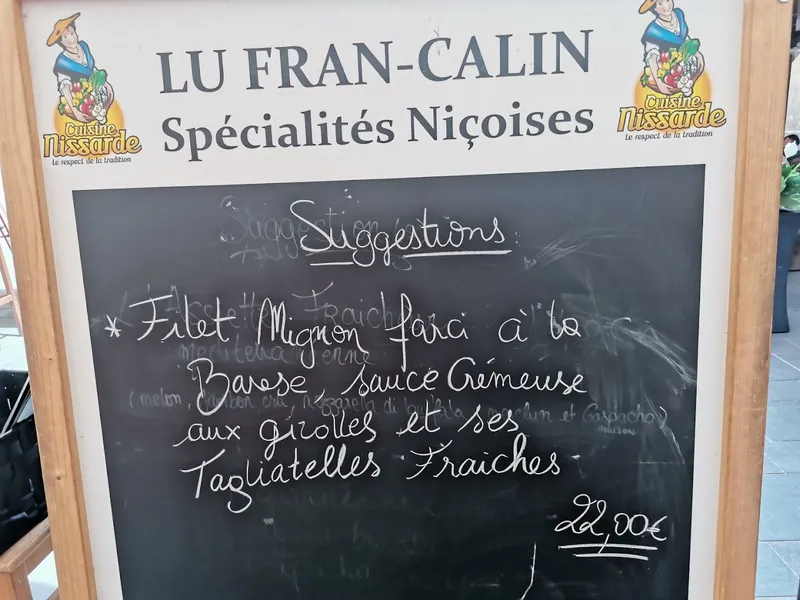 LU FRAN-CALIN
Spécialités Niçoises
Cuisine
Nissarde
Le respect de la tradition
Cuisine
Nissarde
Le respect de la tradition
Suggestions
* Filet Mignon farci à la
Barese, sauce Crémeuse
aux girolles et ses
Tagliatelles Fraiches
22,00€